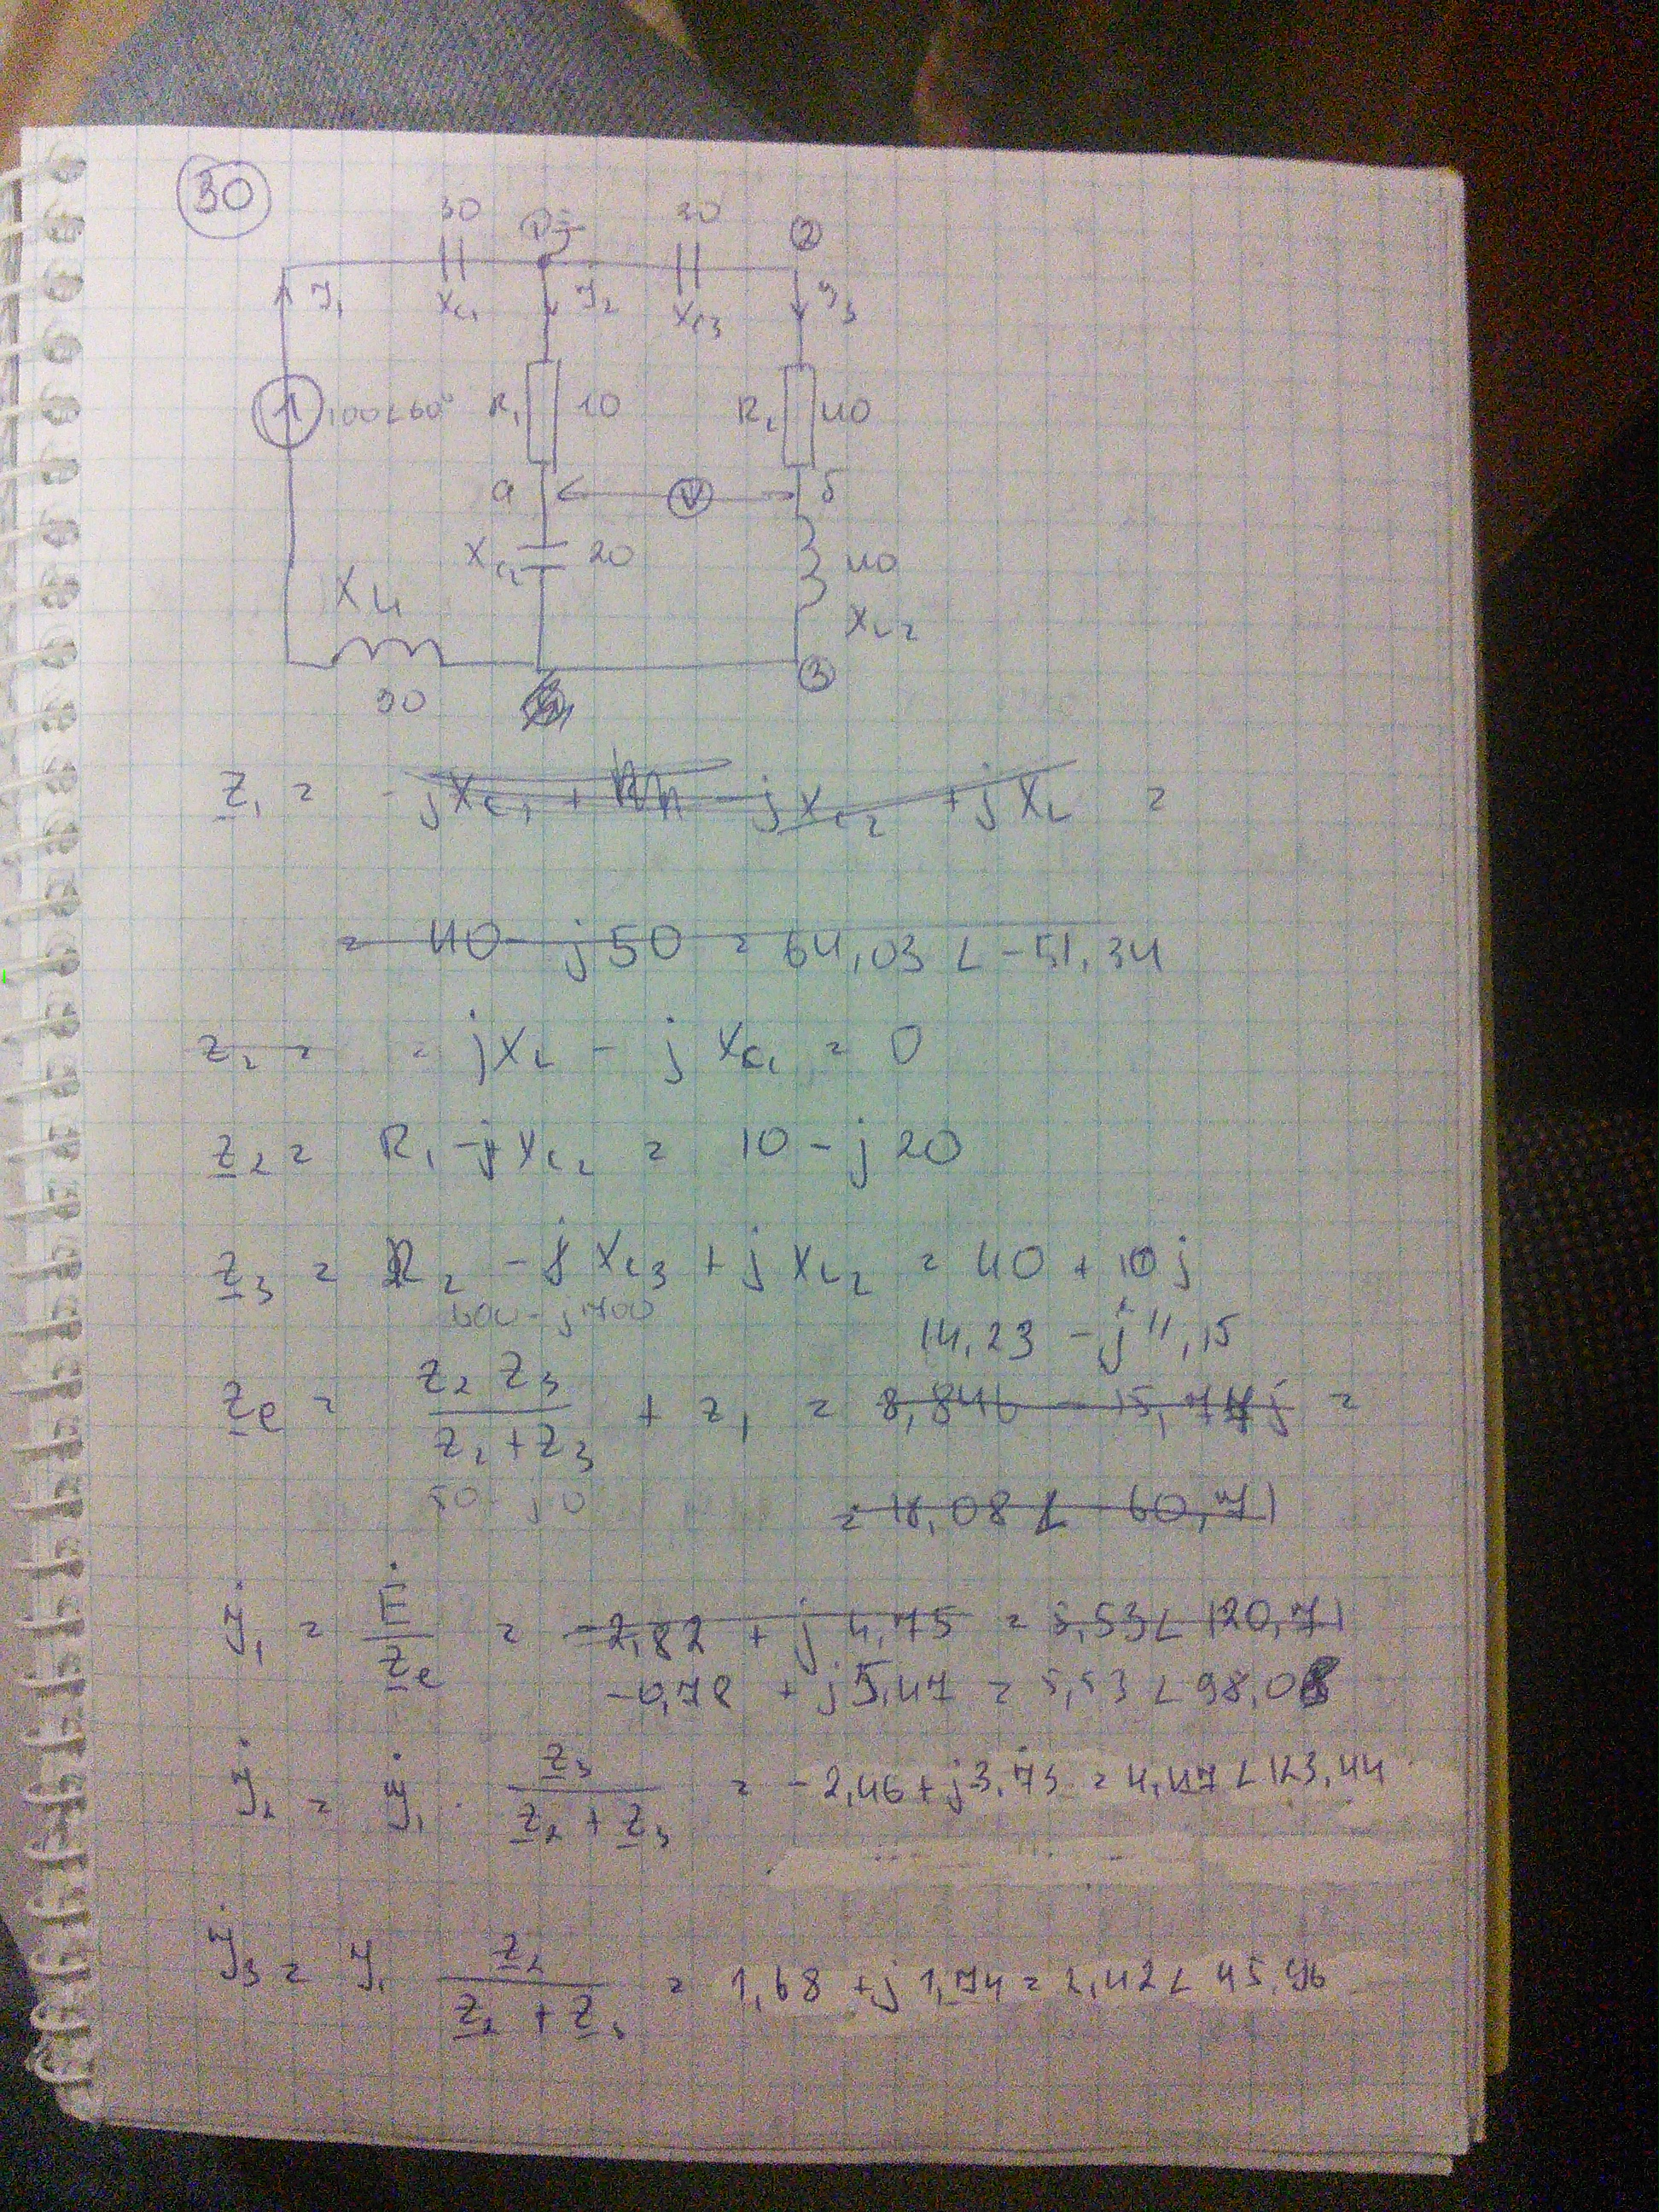 30
30 20
1 2
I₁ Xc₁ I₂ Xc₃ I₃
1 100∠60° R₁ 10 R₂ 40
a V б
Xc₂ 20 40
XL1 XL2
30 3
Z₁ = - jXc₁ + - jXc₂ + jXL =
= 40 - j50 = 64,03∠-51,34
Z₁ = = jXL - jXc₁ = 0
Z₂ = R₁ - jXc₂ = 10 - j20
Z₃ = R₂ - jXc₃ + jXL₂ = 40 + 10j
600 - j700
14,23 - j11,15
Ze = Z₂ Z₃ / Z₂ + Z₃ + Z₁ = 8,846 - 15,77j =
50 - j0
= 18,08∠-60,71
İ₁ = Ė / Ze = -2,82 + j4,75 = 5,53∠120,71
-0,78 + j5,47 = 5,53∠98,08
İ₂ = İ₁ · Z₃ / Z₂ + Z₃ = -2,46 + j3,73 = 4,47∠123,44
İ₃ = I₁ Z₂ / Z₂ + Z₃ = 1,68 + j1,74 = 2,42∠45,96